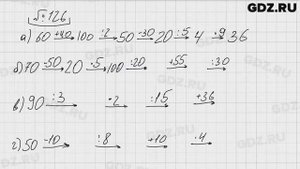 GDZ.RU
№ 126
а) 60 +40 100 :2 50 -30 20 :5 4 ·9 36
б) 70 -50 20 ·5 100 :20 +55 :30
в) 90 :3 ·2 :15 +36
г) 50 -10 :8 +10 :4
GDZ.RU